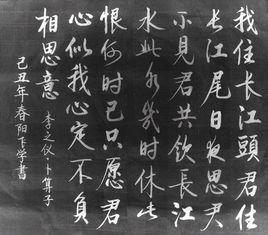 我住长江頭君住
长江尾日夜思君
不見君共飲長江
水此水幾时休此
恨何时已只愿君
心似我心定不負
相思意 李之仪·卜算子
己丑年春阳卞学書